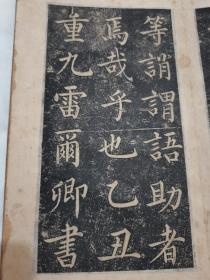 等誚謂語助者
焉哉乎也乙丑
重九雷爾卿書